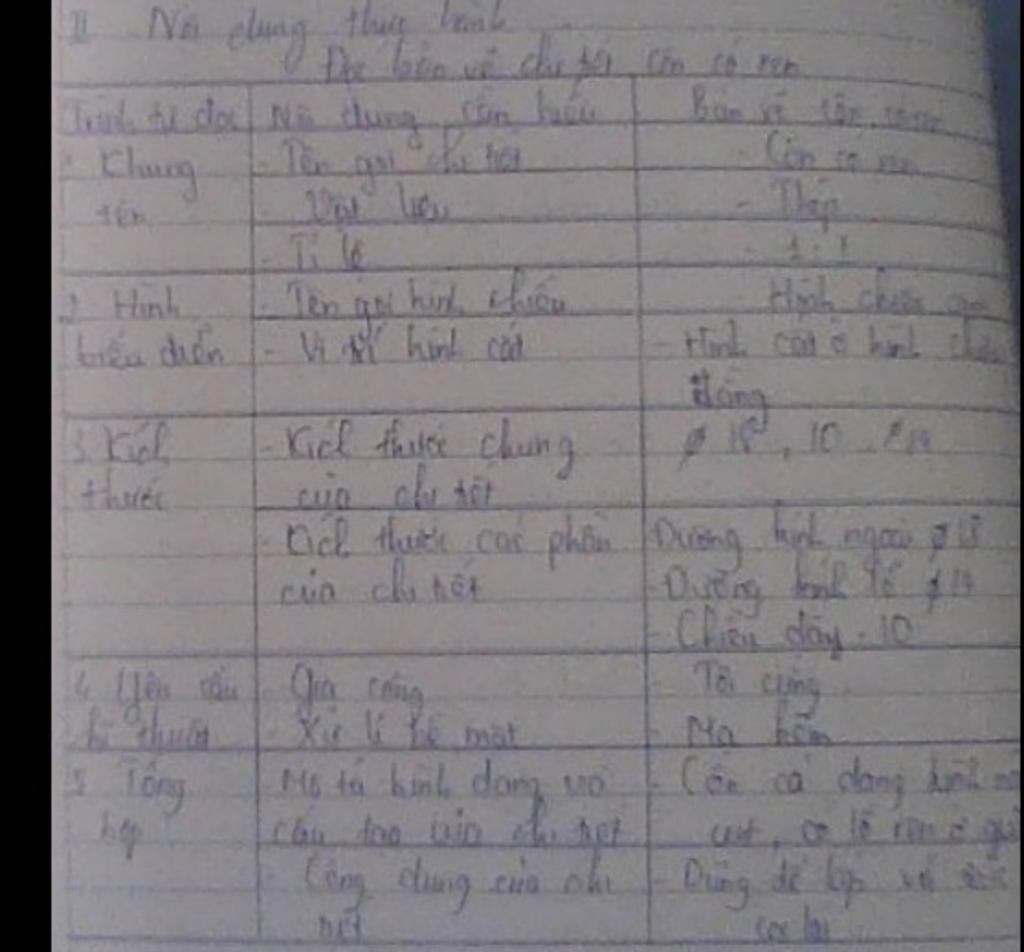 II Nội dung thực hành
Đọc bản vẽ chi tiết côn có ren
Trình tự đọc Nội dung cần hiểu Bản vẽ côn có ren
1. Khung - Tên gọi chi tiết - Côn có ren
tên - Vật liệu - Thép
- Tỉ lệ - 1:1
2. Hình - Tên gọi hình chiếu Hình chiếu cạnh
biểu diễn - Vị trí hình cắt - Hình cắt ở hình chiếu
đứng
3. Kích - Kích thước chung ø 18, 10, ø 14
thước của chi tiết
- Kích thước các phần Đường kính ngoài ø 18
của chi tiết - Đường kính lỗ ø 14
- Chiều dày 10
4. Yêu cầu - Gia công - Tôi cứng
kĩ thuật - Xử lí bề mặt - Mạ kẽm
5. Tổng - Mô tả hình dạng và - Côn có dạng hình nón
hợp cấu tạo của chi tiết cụt, có lỗ ren ở giữa
- Công dụng của chi - Dùng để lắp với
tiết cọc lái